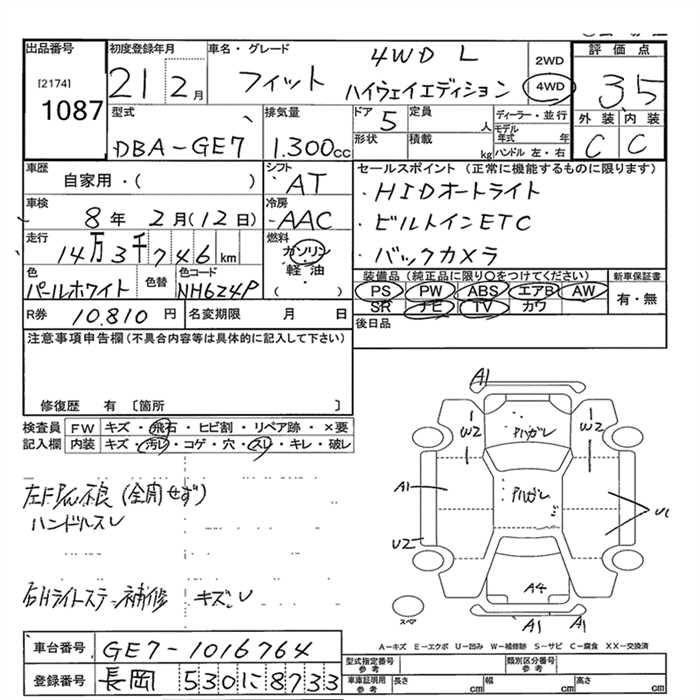 出品番号
[2174]
1087
初度登録年月
21 2月
車名・グレード
4WD L
フィット ハイウェイエディション
2WD
4WD
評価点
3.5
外装 内装
C C
型式
DBA-GE7
排気量
1.300cc
ドア 5
定員 人
形状
積載 kg
ディーラー・並行
モデル年式 年
ハンドル 左・右
車歴
自家用・( )
シフト
AT
車検
8年 2月(12日)
冷房
AAC
走行
14万3千746km
燃料
ガソリン・軽油・( )
色
パールホワイト
色替
色コード
NH624P
R券 10.810円
名変期限 月 日
セールスポイント(正常に機能するものに限ります)
・HIDオートライト
・ビルトインETC
・バックカメラ
装備品(純正品に限り○をつけてください)
PS PW ABS エアB AW
SR ナビ TV カワ
新車保証書
有・無
後日品
注意事項申告欄(不具合内容等は具体的に記入して下さい)
修復歴 有〔箇所 〕
検査員記入欄
FW キズ・飛石・ヒビ割・リペア跡・×要
内装 キズ・汚れ・コゲ・穴・スレ・キレ・破レ
左F P/W不良(全閉せず)
ハンドルスレ
右Hライトステー補修 キズU
A1
W2
W2
ハガレ
A1
ハガレ
U1
U2
A4
A1
A1
スペア
A-キズ E-エクボ U-凹み W-補修跡 S-サビ C-腐食 XX-交換済
車台番号 GE7-1016764
登録番号 長岡 530に8733
型式指定番号 参考
類別区分番号 参考
車庫証明用 参考
長さ cm
幅 cm
高さ cm